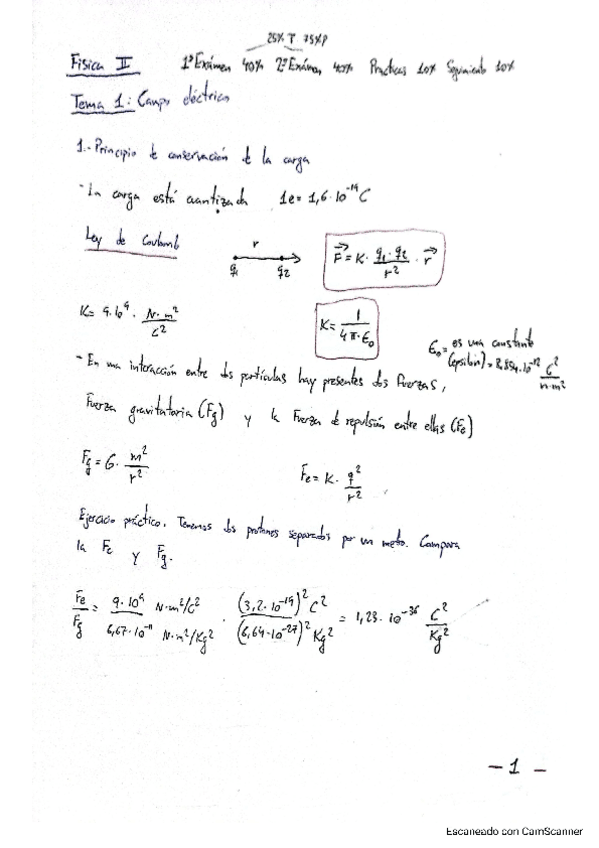 25% T 75% P
Física II 1º Exámen 40% 2º Exámen 40% Practicas 10% Seguimiento 10%
Tema 1: Campo eléctrico
1.- Principio de conservación de la carga
- La carga está cuantizada 1e = 1,6·10^-19 C
Ley de Coulomb
r
q1 q2
F = K · q1·q2 / r^2 · r
K = 9·10^9 · N·m^2 / C^2
K = 1 / 4π·ε0
ε0 = es una constante
(epsilon) = 8,854·10^-12 C^2 / N·m^2
- En una interacción entre dos partículas hay presentes dos fuerzas,
Fuerza gravitatoria (Fg) y la Fuerza de repulsión entre ellas (Fe)
Fg = G · m^2 / r^2 Fe = K · q^2 / r^2
Ejercicio práctico. Tenemos dos protones separados por un metro. Compara
la Fe y Fg.
Fe / Fg = 9·10^9 N·m^2/C^2 / 6,67·10^-11 N·m^2/Kg^2 · (3,2·10^-19)^2 C^2 / (6,64·10^-27)^2 Kg^2 = 1,23·10^-36 C^2 / Kg^2
- 1 -
Escaneado con CamScanner